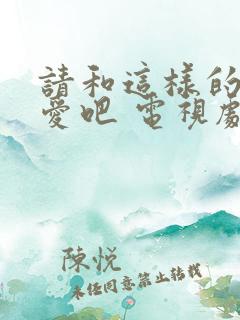 請和這樣的
愛吧 電視劇
陳悅
未經同意禁止轉載